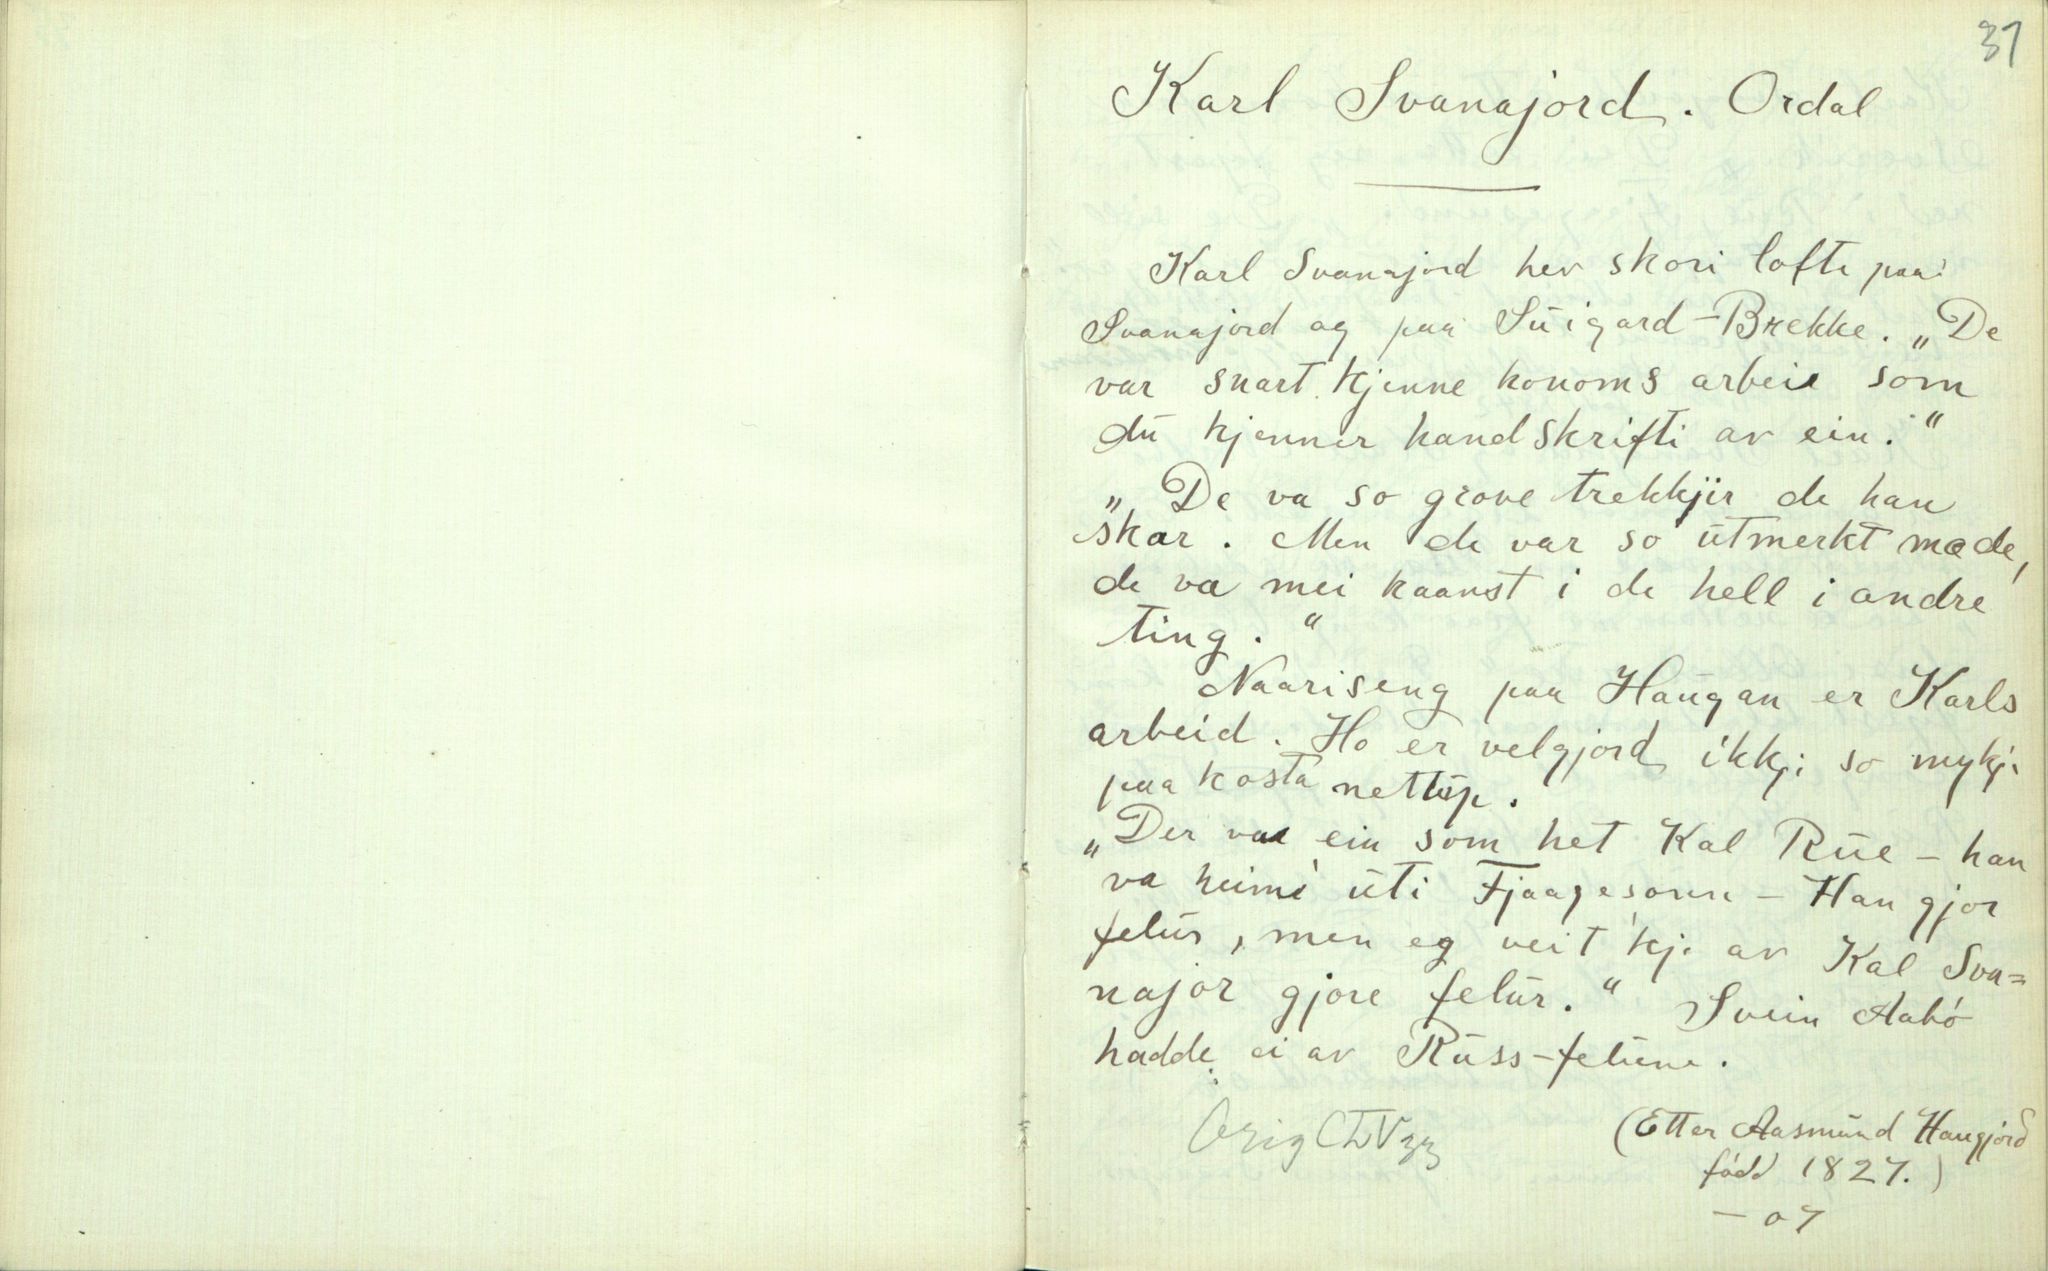 37
Karl Svanajord. Ordal
Karl Svanajord hev skori lofte paa
Svanajord og paa Suigard-Brekke. „De
var snart kjenne honoms arbeie som
du kjenner handskrifti av ein."
„De va so grove trekkjir de han
skar. Men de var so utmerkt made,
de va mei kaanst i de hell i andre
ting."
Naariseng paa Haugan er Karls
arbeid. Ho er velgjord ikkji so mykji
paa kosta nettup.
„Der var ein som het Kal Rue – han
va heime uti Fjaagesonn – Han gjor
felur, men eg veit 'kji av Kal Sva=
najor gjore felur." Svein Aabö
hadde ei av Russ-felune.
Orig
(Etter Aasmund Haugjord
född 1827.)
– 07